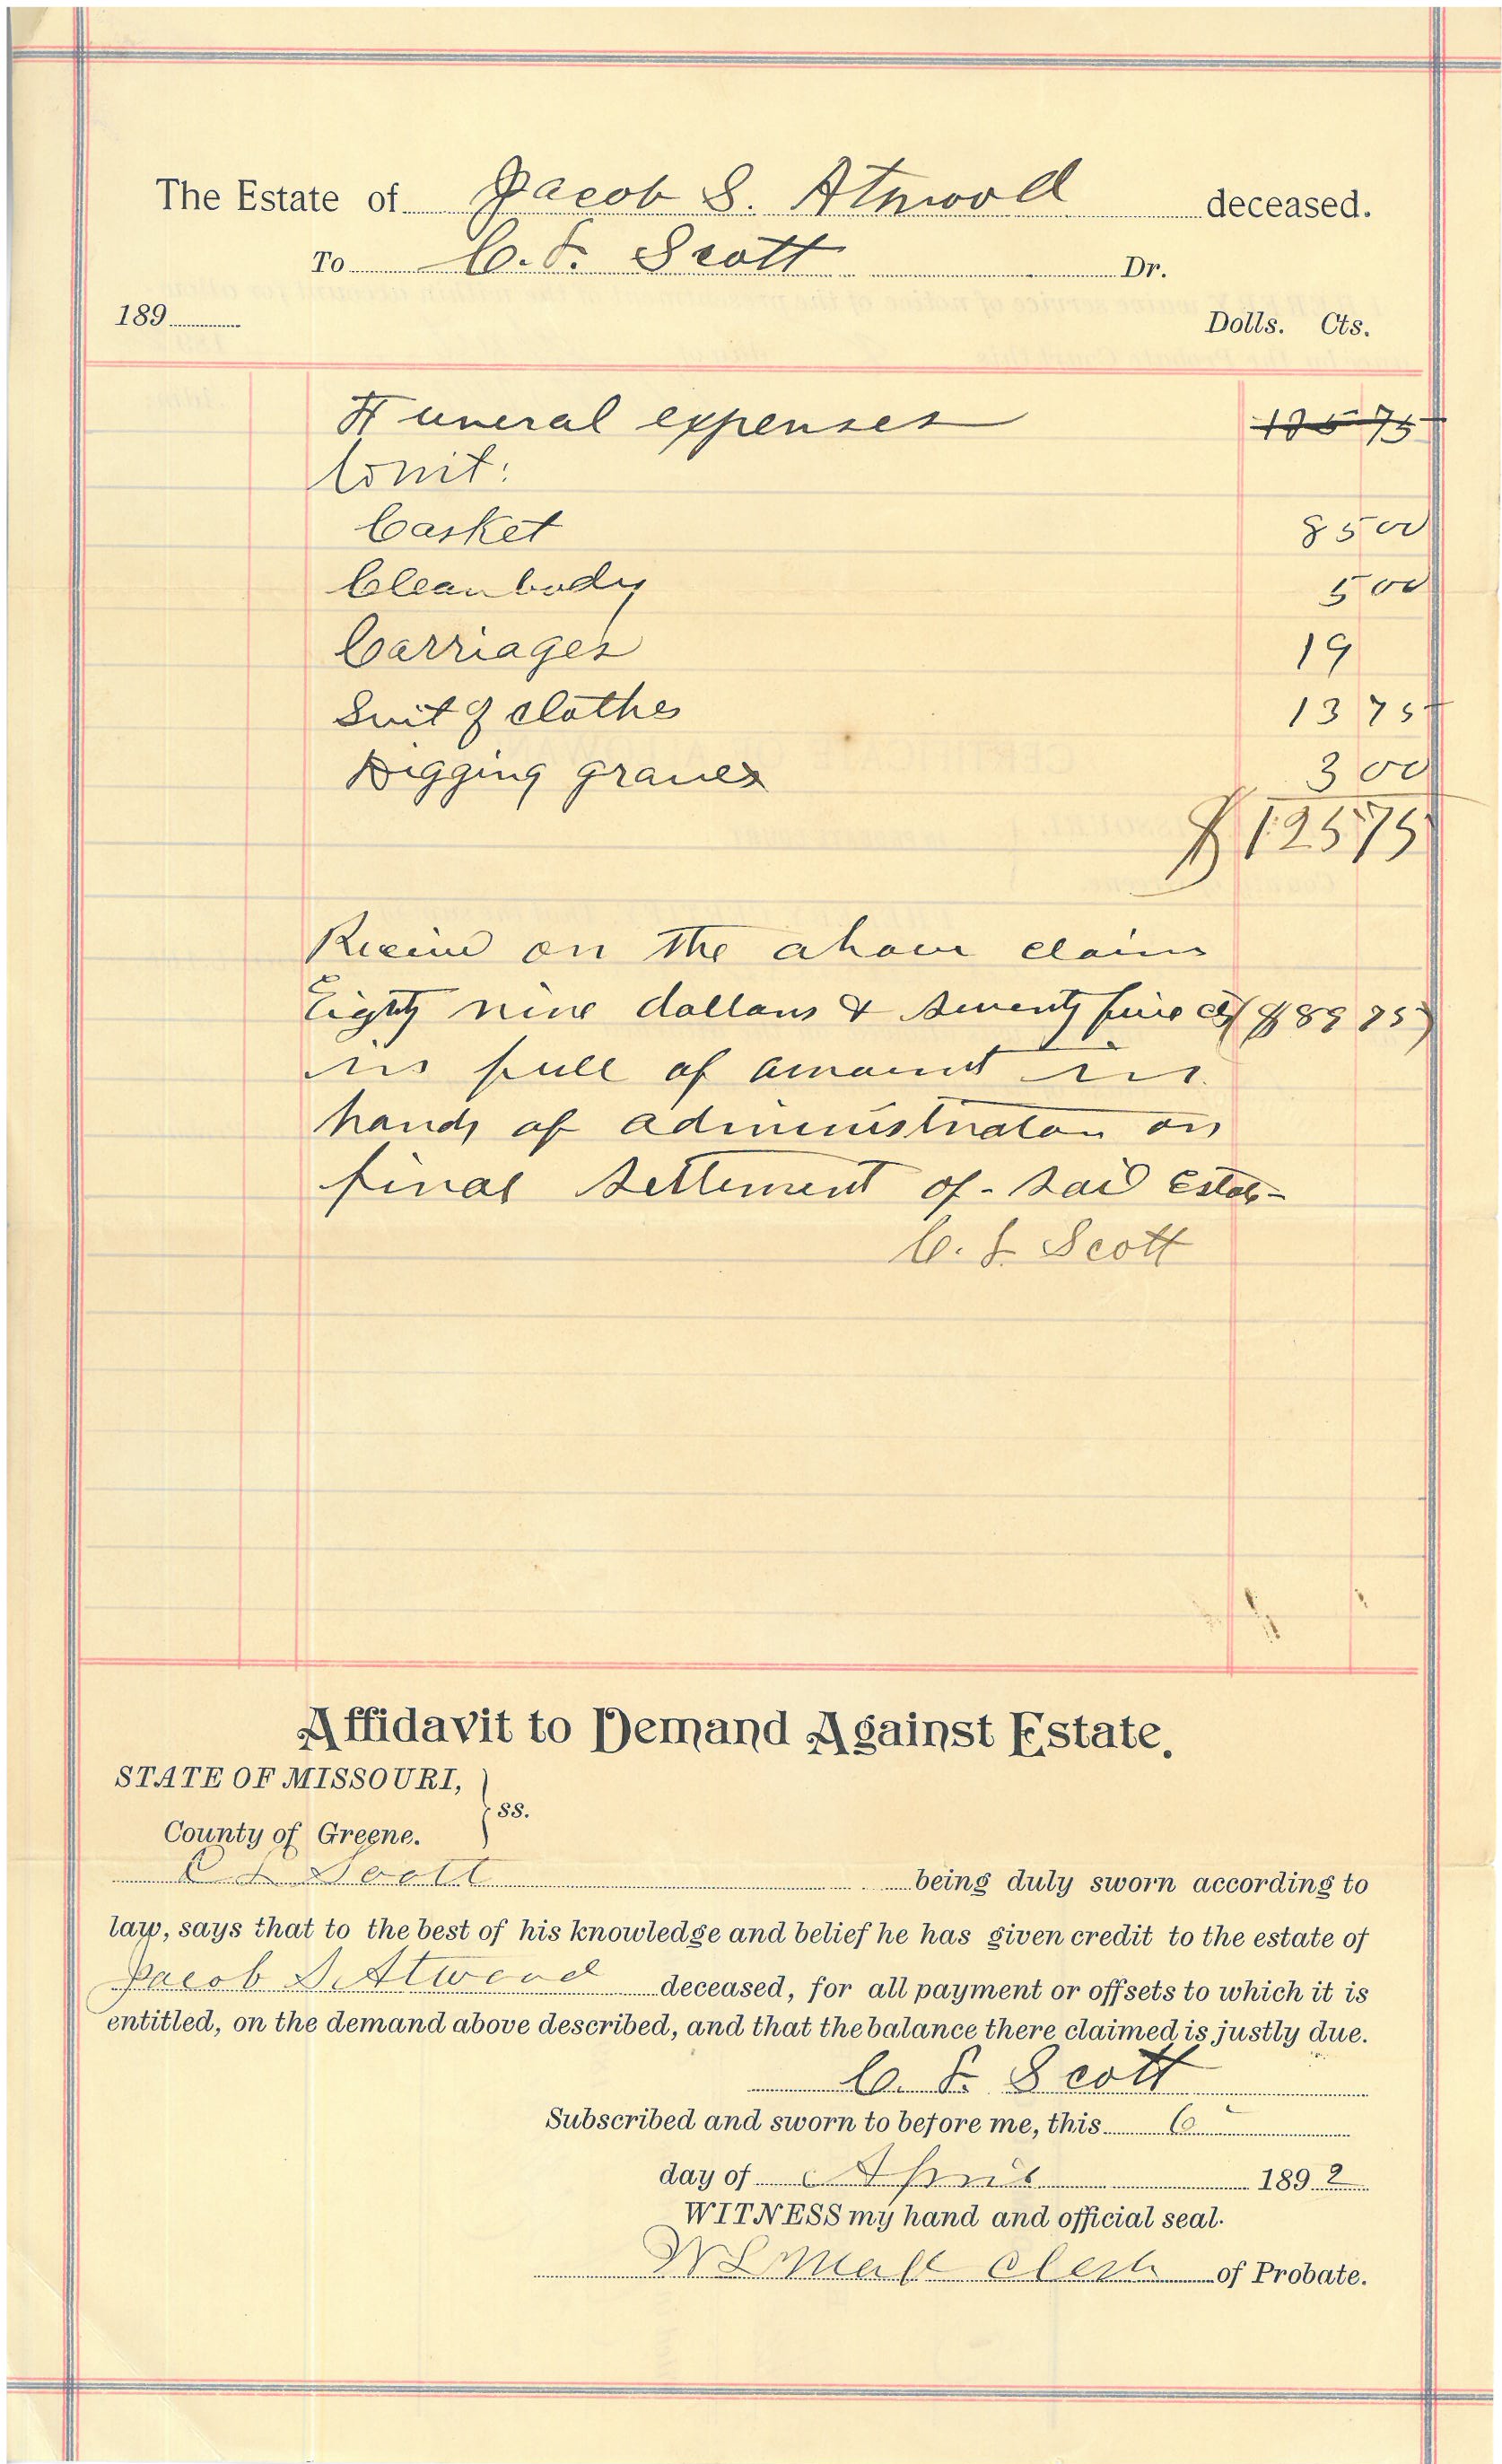 The Estate of Jacob S. Atwood deceased.
To C. F. Scott Dr.
189 Dolls. Cts.
Funeral expenses 125 75
towit:
Casket 85 00
Clean body 5 00
Carriages 19
Suit of clothes 13 75
Digging graves 3 00
$ 125 75
Receivd on the above claim
Eighty nine dollars & Seventy five cts ($89 75)
in full of amount in
hands of administrator on
final settlement of said Estate
C. F. Scott
Affidavit to Demand Against Estate.
STATE OF MISSOURI,
ss.
County of Greene.
C F Scott being duly sworn according to
law, says that to the best of his knowledge and belief he has given credit to the estate of
Jacob S. Atwood deceased, for all payment or offsets to which it is
entitled, on the demand above described, and that the balance there claimed is justly due.
C. F. Scott
Subscribed and sworn to before me, this 6
day of April 1892
WITNESS my hand and official seal.
Clerk of Probate.